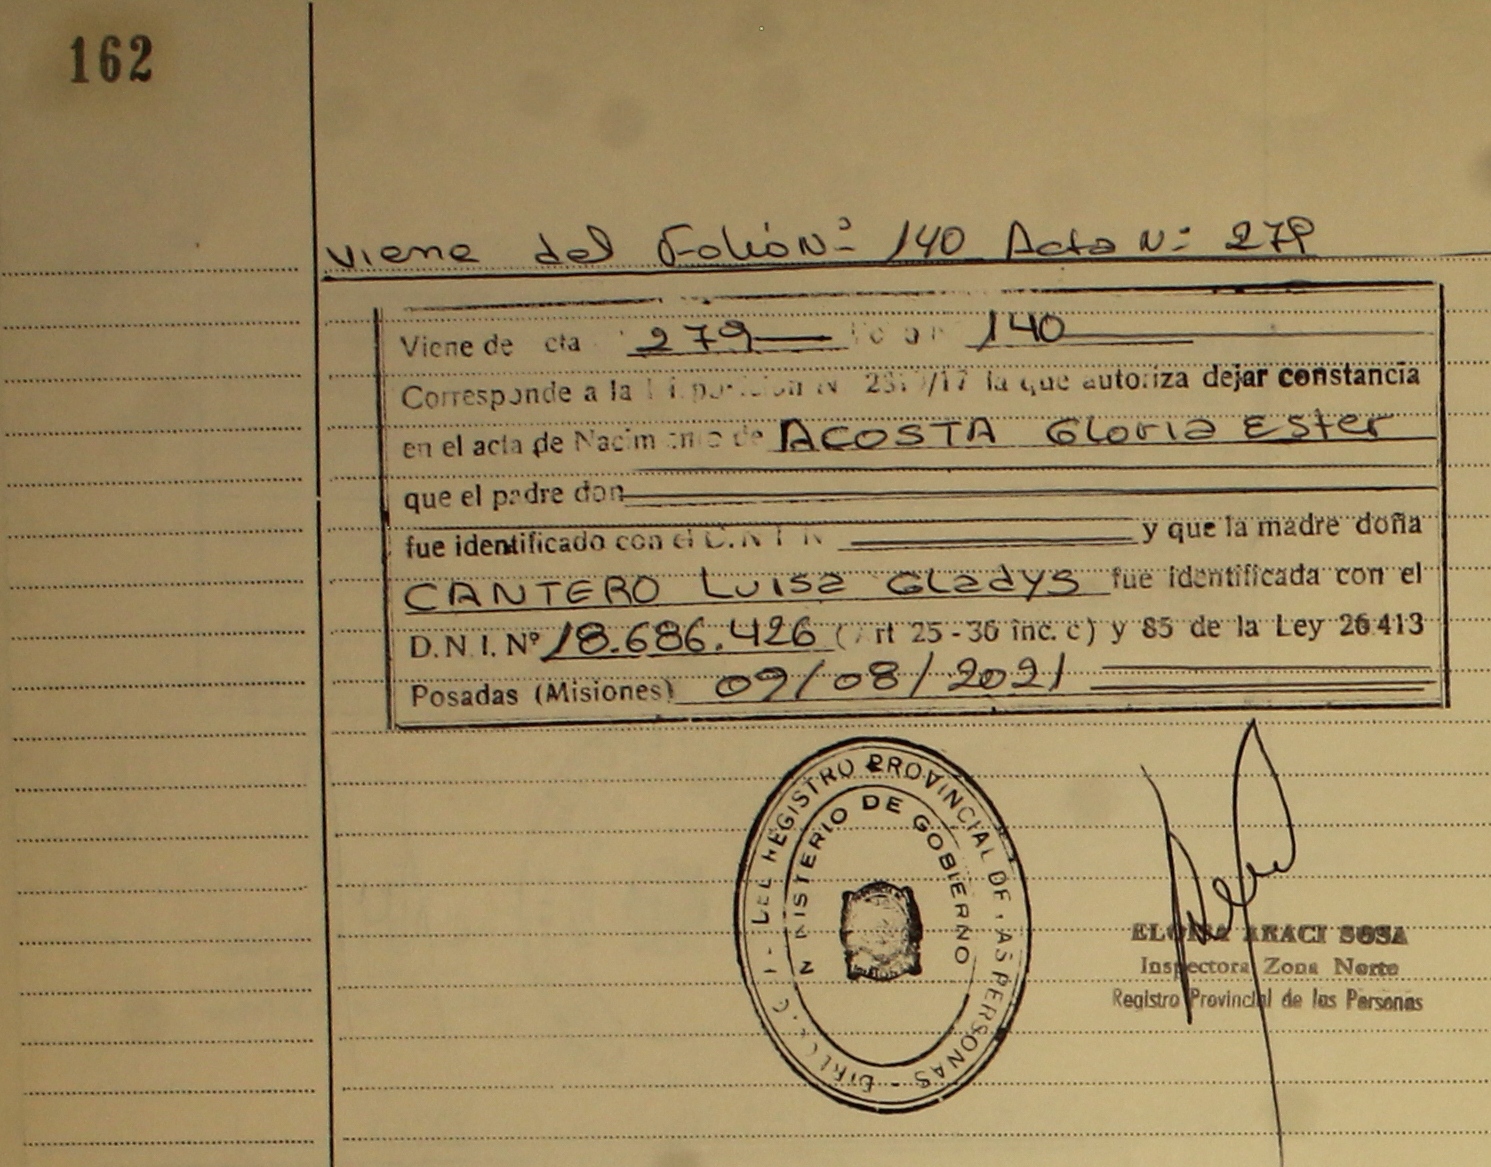 162
Viene del Folio Nº 140 Acta Nº 279
Viene de cta 279 140
Corresponde a la /17 la que autoriza dejar constancia
en el acta de ACOSTA Gloria Ester
que el padre don
fue identificado con el D.N.I. N y que la madre doña
CANTERO Luisa Gladys fue identificada con el
D.N.I. Nº 18.686.426 ( rt 25-36 inc. c) y 85 de la Ley 26413
Posadas (Misiones) 09/08/2021
REGISTRO PROVINCIAL DE LAS PERSONAS
MINISTERIO DE GOBIERNO
ELOISA ARACI SOSA
Inspectora Zona Norte
Registro Provincial de las Personas